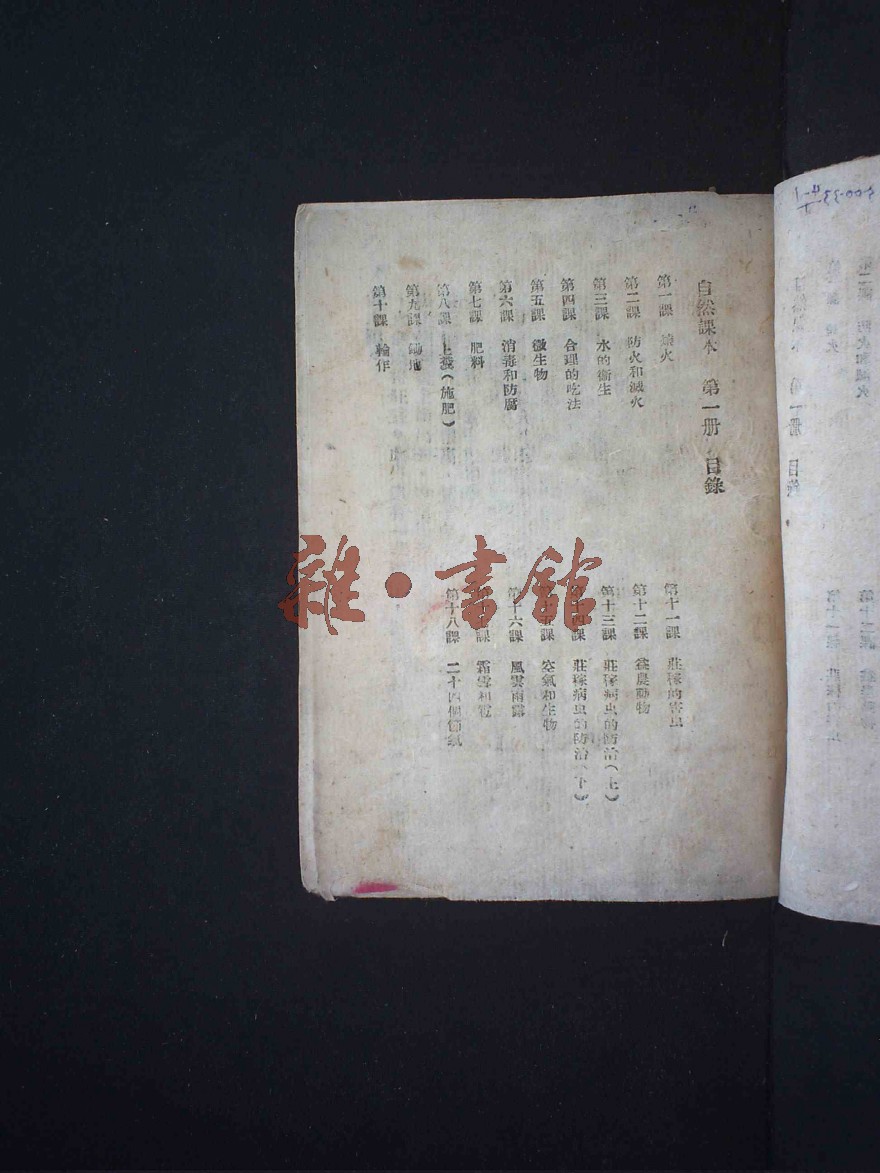 自然課本 第一册 目錄
第一課 燒火
第二課 防火和滅火
第三課 水的衞生
第四課 合理的吃法
第五課 微生物
第六課 消毒和防腐
第七課 肥料
第八課 上糞(施肥)
第九課 鋤地
第十課 輪作
第十一課 莊稼的害虫
第十二課 益農動物
第十三課 莊稼病虫的防治(上)
第十四課 莊稼病虫的防治(下)
第十五課 空氣和生物
第十六課 風雲雨露
第十七課 霜雪和雹
第十八課 二十四個節氣
雜·書館